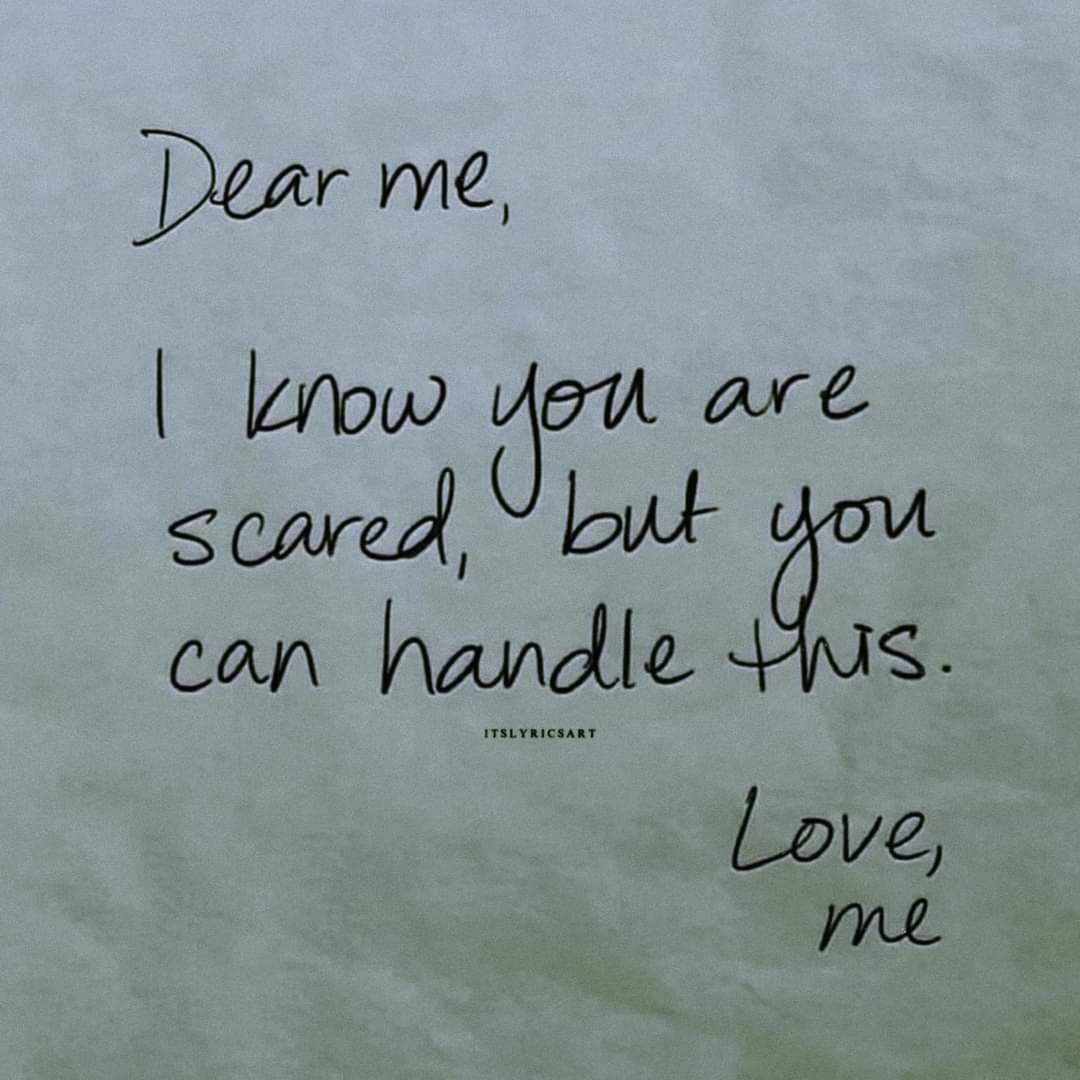 Dear me,
I know you are
scared, but you
can handle this.
ITSLYRICSART
Love,
me